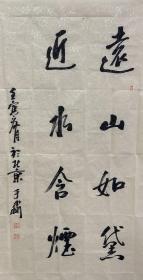 遠山如黛
近水含煙
壬寅年春月於北京于肅